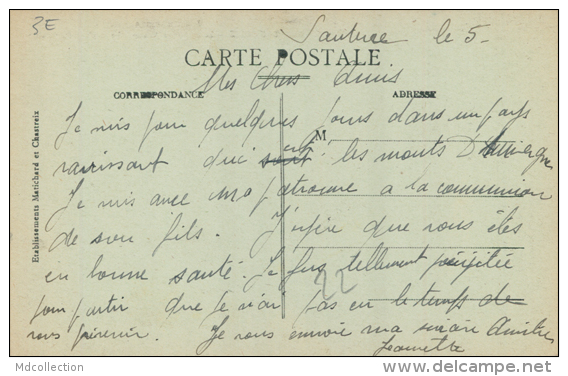 3E
le 5-
CARTE POSTALE
Mes Chers Amis
CORRESPONDANCE
ADRESSE
M
Je suis pour quelques jours dans un pays
ravissant qui est les monts D'Auvergne
Je suis avec ma patronne à la communion
de son fils. J'espère que vous êtes
en bonne santé. Je fus tellement précipitée
pour partir que je n'ai pas eu le temps de
vous prévenir. Je vous envoie ma sincère Amitié
Etablissements Matichard et Chastreix
22
Mdcollection
http://www.delcampe.net